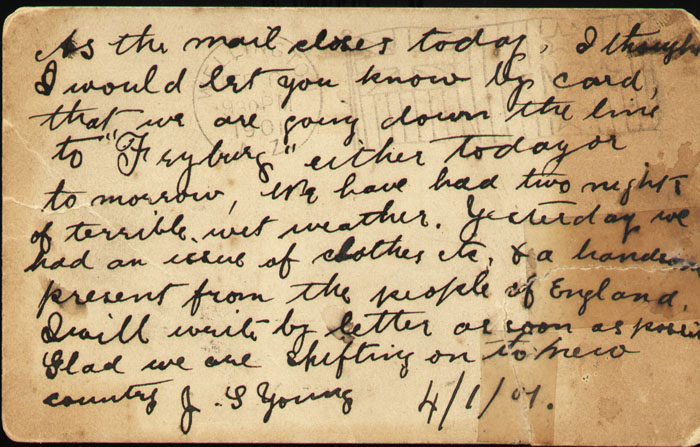 As the mail closes today, I though
I would let you know by card,
that we are going down the line
to "Fryburg" either today or
to morrow, We have had two nights
of terrible wet weather. Yesterday we
had an issue of clothes etc, & a handsom
present from the people of England,
I will write by letter as soon as possi
Glad we are shifting on to new
country J. S Young 4/1/01.